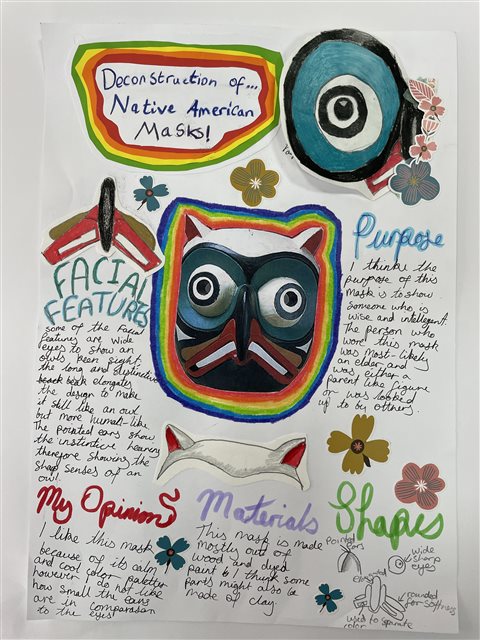 Deconstruction of...
Native American
Masks!
FACIAL
FEATURES
some of the Facial
Features are wide
eyes to show an
owls been sight
the long and distinctive
beack elongates
the design to make
it still like an owl
but more human-like
The pointed ears show
the instintive hearing
therefore showing the
sharp senses of an
owl.
Purpose
I thinke the
purpose of this
Mask is to show
someone who is
wise and intellegent.
The person who
wore this mask
was most-likely
an elder and
was either a
parent like figure
or was looked
up to by otheers.
My Opinions
I like this mask
because of its calm
and cool color palette
however I do not like
how small the ears
are in comparasan
to the eyes!
Materials
This mask is made
mostly out of
wood and dyed
paint & think some
parts might also be
made of clay.
Shapes
Pointed
ears
wide
sharp
eyes
elongated
rounded
for softness
used to separate
color